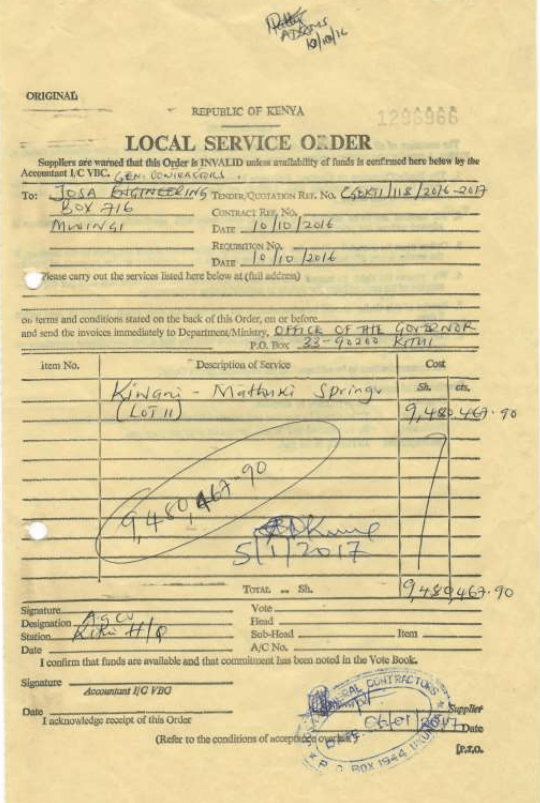 10/10/16
ORIGINAL
REPUBLIC OF KENYA
1296966
LOCAL SERVICE ORDER
Suppliers are warned that this Order is INVALID unless availability of funds is confirmed here below by the
Accountant I/C VBC. GEN. CONTRACTORS.
To: JOSA ENGINEERING TENDER/QUOTATION REF. NO. CGKTI/118/2016-2017
BOX 716 CONTRACT REF. NO.
MWINGI DATE 10/10/2016
REQUISITION NO.
DATE 10/10/2016
Please carry out the services listed here below at (full address)
on terms and conditions stated on the back of this Order, on or before
and send the invoices immediately to Department/Ministry, OFFICE OF THE GOVERNOR
P.O. Box 33-90200 KITUI
Item No. Description of Service Cost
Sh. cts.
Kiwani - Mathuki Springs
(LOT 11) 9,480,467.90
9,480,467.90
5/1/2017
TOTAL .. Sh. 9,480,467.90
Signature Vote
Designation Head
Station Kitui H/Q Sub-Head Item
Date A/C No.
I confirm that funds are available and that commitment has been noted in the Vote Book.
Signature
Accountant I/C VBC
GENERAL CONTRACTORS
Supplier
Date 06/01/2017 Date
I acknowledge receipt of this Order
P.O. BOX 1944
(Refer to the conditions of acceptance overleaf)
[P.T.O.